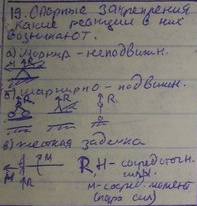 19. Опорные закрепления
какие реакции в них
возникают.
а) Шарнир - неподвижн.
R
б) шарнирно - подвижн.
R R R
в) жесткая заделка
M
R, H - сосредоточ.
силы
H R
M - сосред. момент
(пара сил)